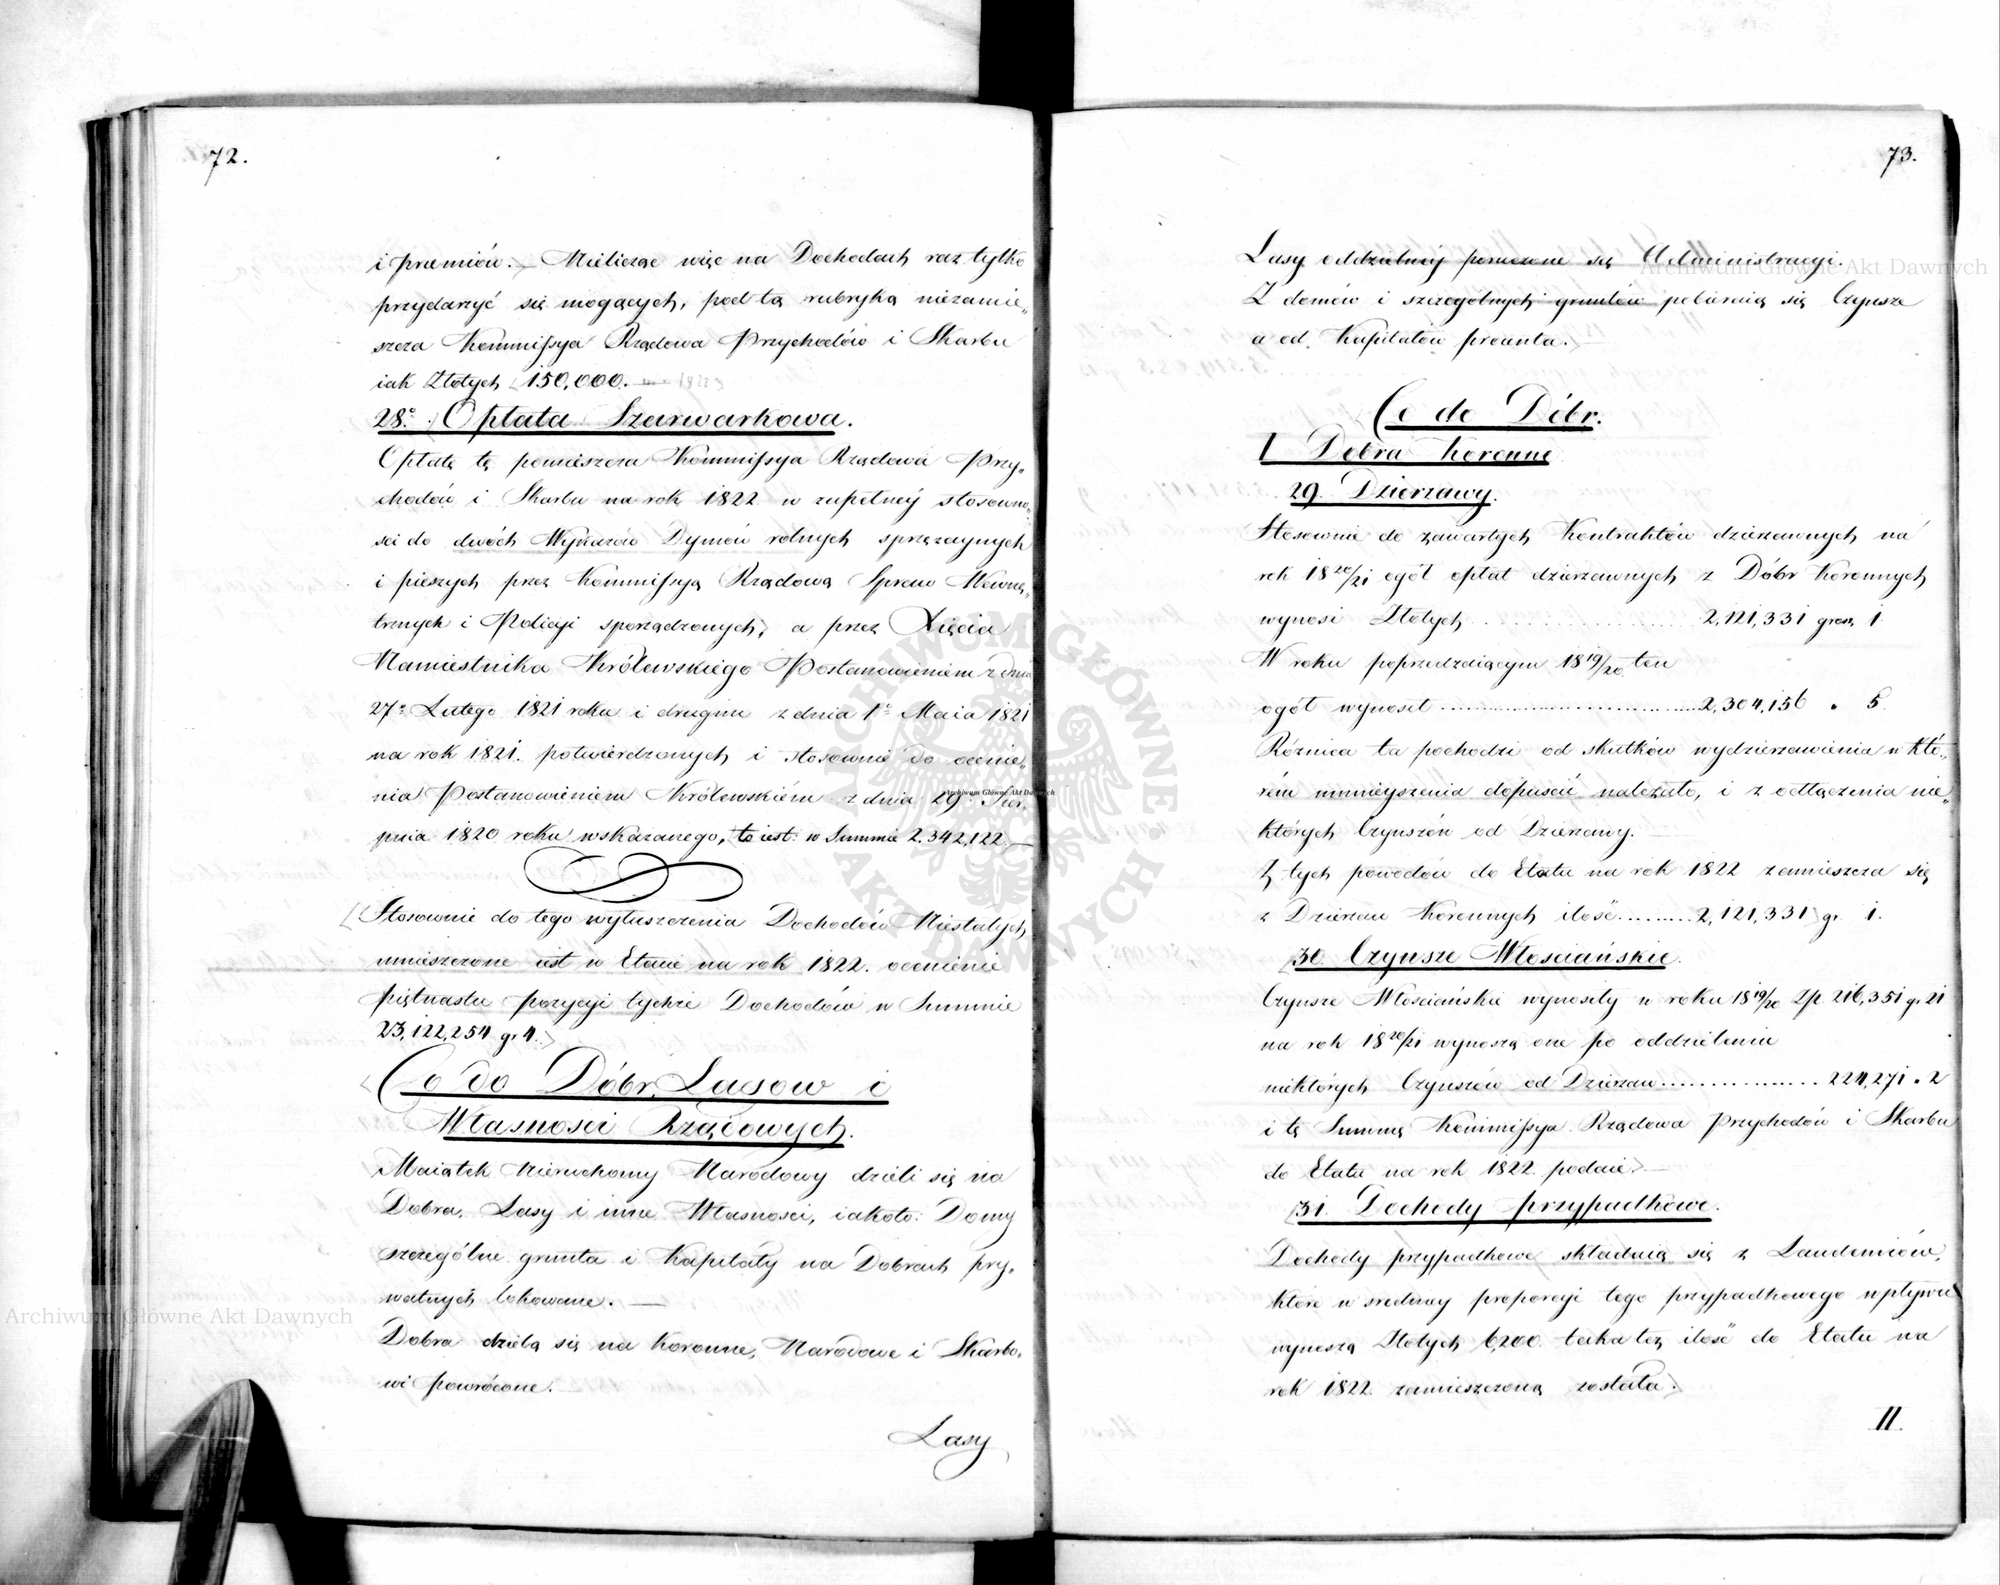 72.
i premiów. — Nielicząc więc na Dochodach raz tylko
przydarzyć się mogących, pod tą rubryką niezamie„
szcza Kommissya Rządowa Przychodów i Skarbu
iak Złotych 150,000.
28o. Opłata Szarwarkowa.
Opłatę tę pomieszcza Kommissya Rządowa Przy„
chodów i Skarbu na rok 1822 w zupełney stosowno„
sci do dwóch Wykazów Dymów rolnych sprzężaynych
i pieszych przez Kommissyą Rządową Spraw Wewnę„
trznych i Policyi sporządzonych, a przez Xięcia
Namiestnika Królewskiego Postanowieniem z dnia
27o Lutego 1821 roku i drugim z dnia 1o Maia 1821
na rok 1821. potwierdzonych i stosownie do ocenie„
nia Postanowieniem Królewskiém z dnia 29o Sier„
pnia 1820 roku wskazanego, to iest: w Summie 2,342,122 —
Stosownie do tego wyłuszczenia Dochodów Niestałych
umieszczone iest w Etacie na rok 1822. ocenienie
piętnastu pozycyi tychże Dochodów w Summie
23,122,254 gr 4.
Co do Dóbr, Lasow i
Własnosci Rządowych.
Maiątek Nieruchomy Narodowy dzieli się na
Dobra, Lasy i inne Własnosci, iakoto: Domy
szczególne grunta i Kapitały na Dobrach pry„
watnych lokowane. —
Dobra dzielą się na Koronne, Narodowe i Skarbo„
wi powrócone.
Lasy
73.
Lasy oddzielnéy poruczone są Administracyi.
Z domów i szczególnych gruntów pobieraią się Czynsze
a od Kapitałów procenta.
Co do Dóbr.
I Dobra Koronne
29. Dzierzawy.
Stosownie do zawartych Kontraktów dzierzawnych na
rok 18 20/21 ogół opłat dzierzawnych z Dóbr Koronnych
wynosi Złotych ............ 2,121,331 grosz 1
W roku poprzedzaiącym 18 19/20 ten
ogół wynosił ............ 2,304,156 „ 5
Różnica ta pochodzi od skutków wydzierzawienia w któ„
rém umnieyszenia dopuścić należało, i z odłączenia nie„
których Czynszów od Dzierzawy. —
Z tych powodów do Etatu na rok 1822 zamieszcza się
z Dzierzaw Koronnych ilość ......... 2,121,331 gr 1.
30. Czynsze Włosciańskie.
Czynsze Włosciańskie wynosiły w roku 18 19/20 Zp. 216,351 gr 21
na rok 18 20/21 wynoszą one po oddzieleniu
niektórych Czynszów od Dzierzaw ............... 224,271 „ 2
i tę Summę Kommissya Rządowa Przychodów i Skarbu
do Etatu na rok 1822 podaie. —
31. Dochody przypadkowe.
Dochody przypadkowe składaią się z Laudemiów,
które w srednéy proporcyi tego przypadkowego wpływu
wynoszą Złotych 6,200. takaż też ilość do Etatu na
rok 1822 zamieszczoną została.
II.
Archiwum Główne Akt Dawnych
Archiwum Główne Akt Dawnych
Archiwum Główne Akt Dawnych
ARCHIWUM GŁÓWNE • AKT DAWNYCH •